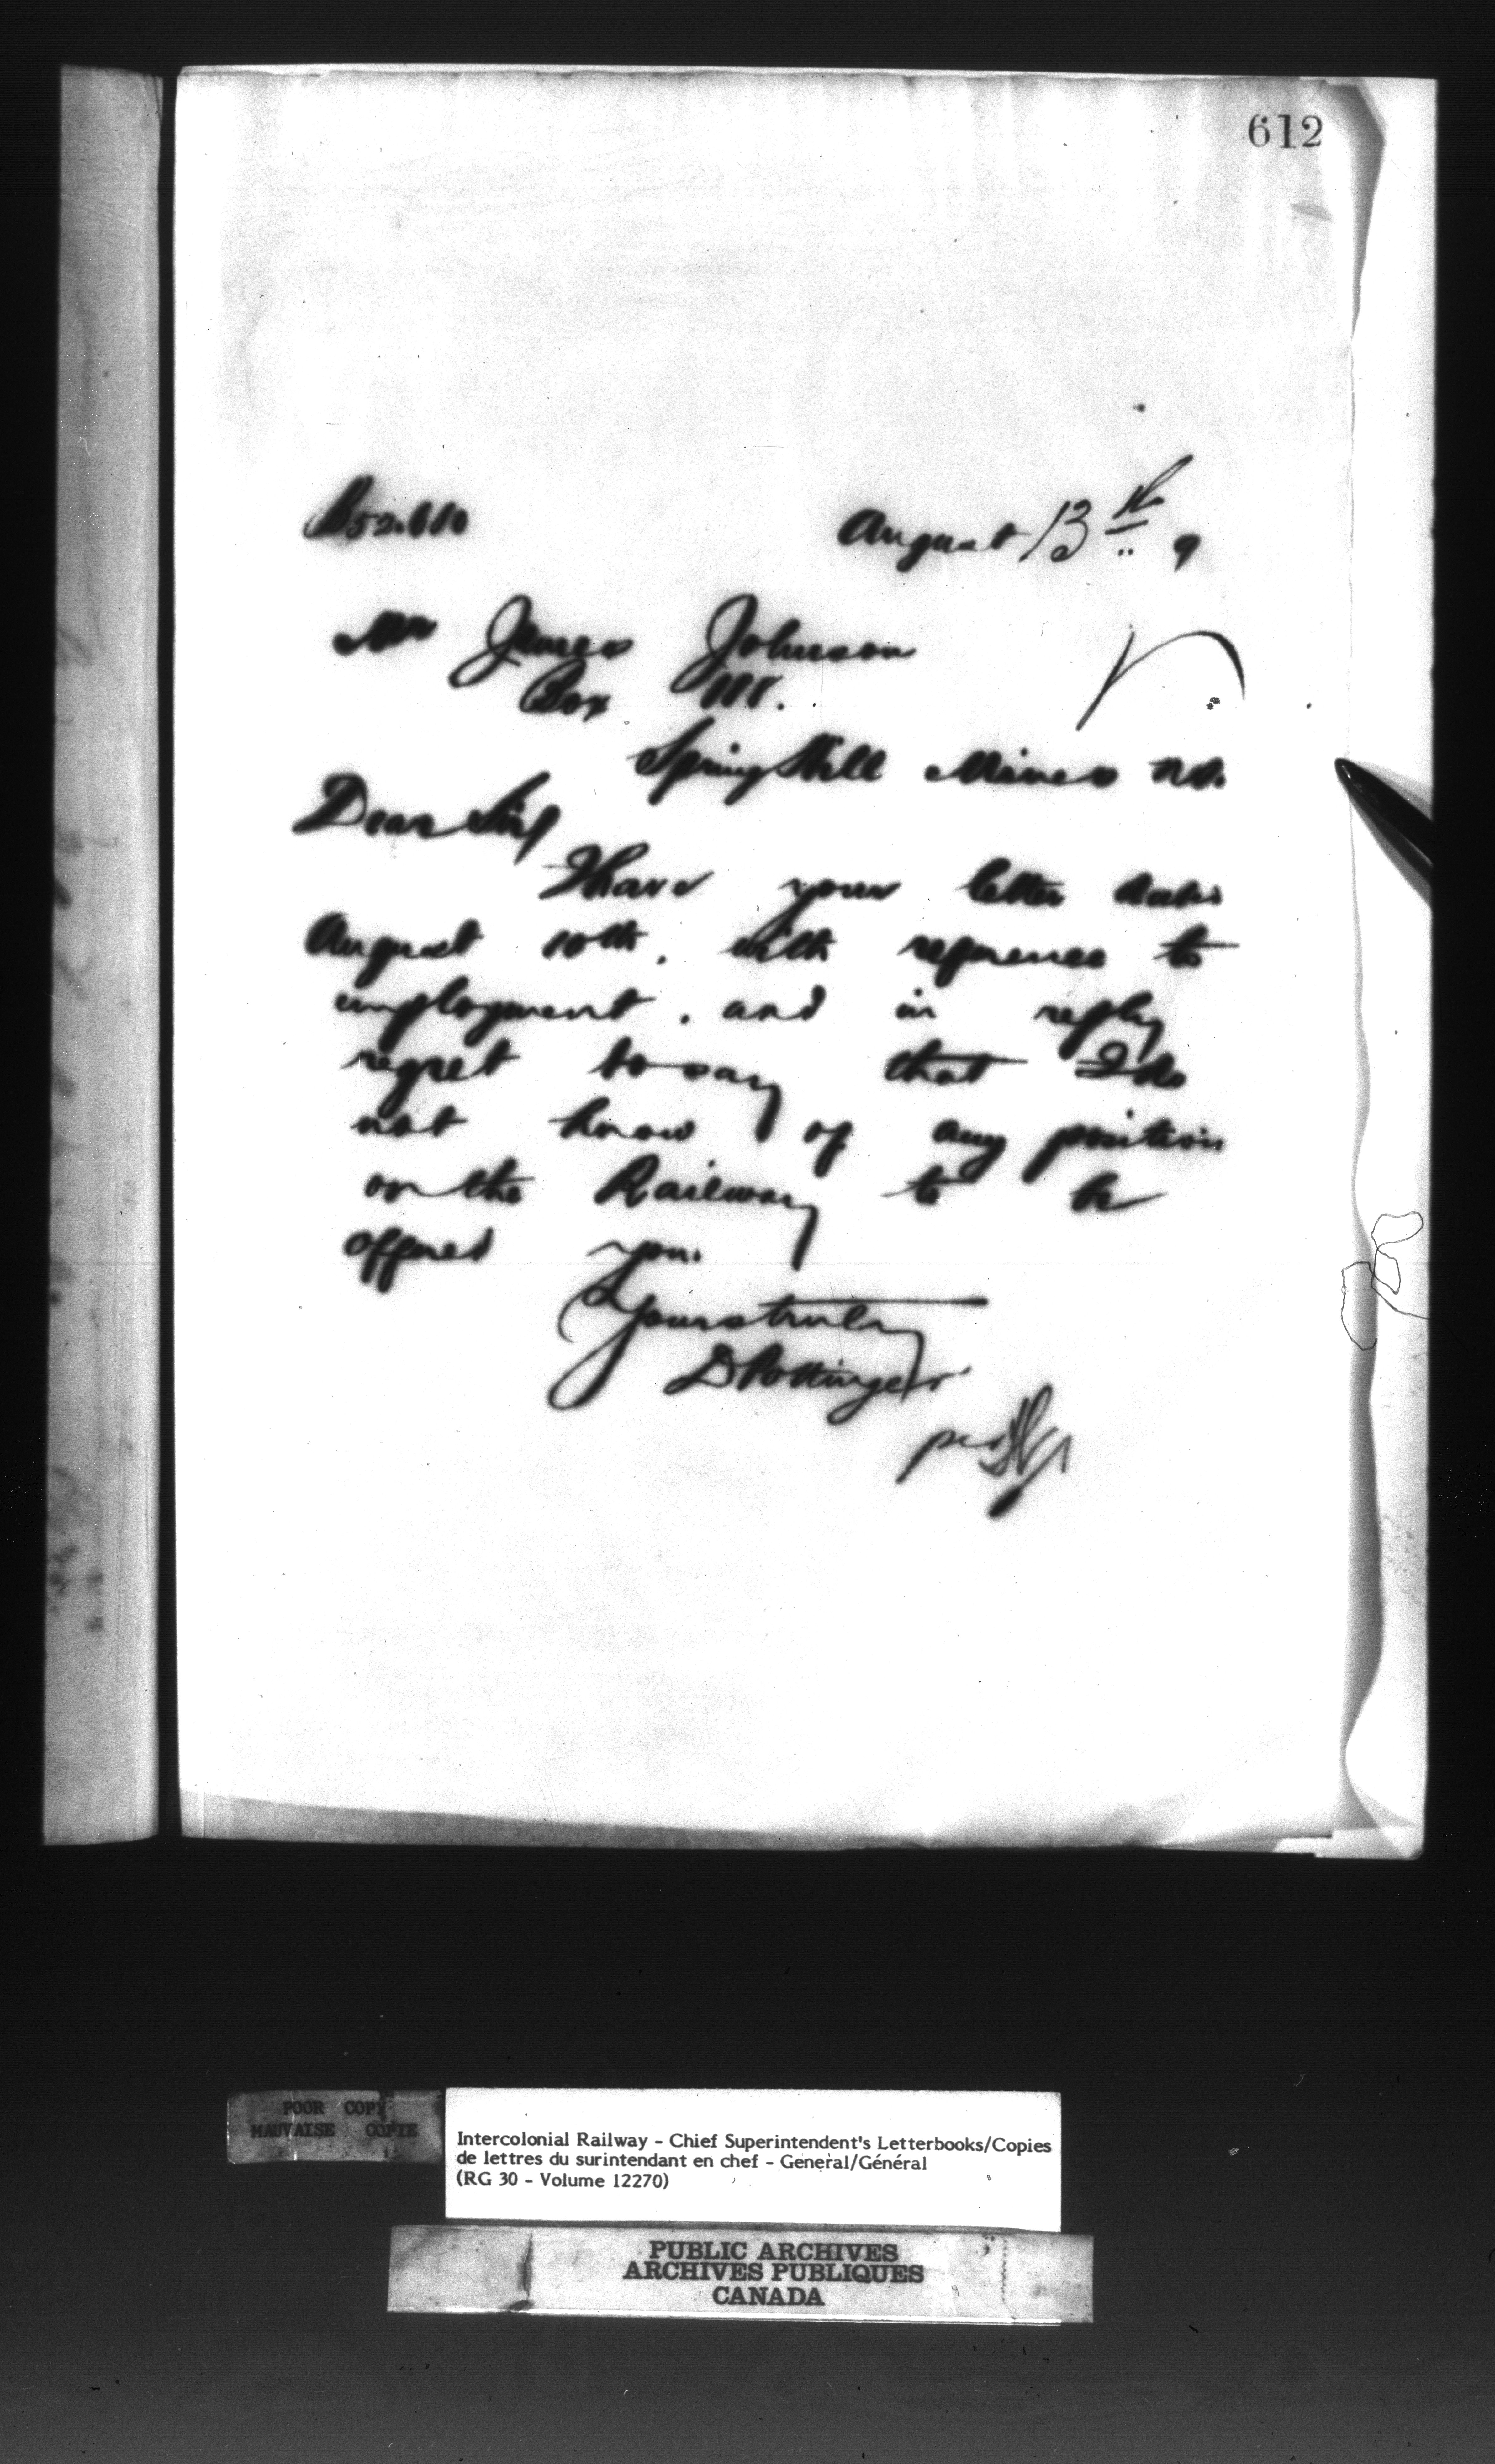 612
August 13th 9
Mr James Johnson
Box
Spring Hill Mines N.S.
Dear Sir
I have your letter date
August 10th. with reference to
employment. and in reply
regret to say that I do
not know of any position
on the Railway to be
offered you.
Yours truly
D Pottinger
per
POOR COPY
MAUVAISE COPIE
Intercolonial Railway - Chief Superintendent's Letterbooks/Copies
de lettres du surintendant en chef - General/Général
(RG 30 - Volume 12270)
PUBLIC ARCHIVES
ARCHIVES PUBLIQUES
CANADA